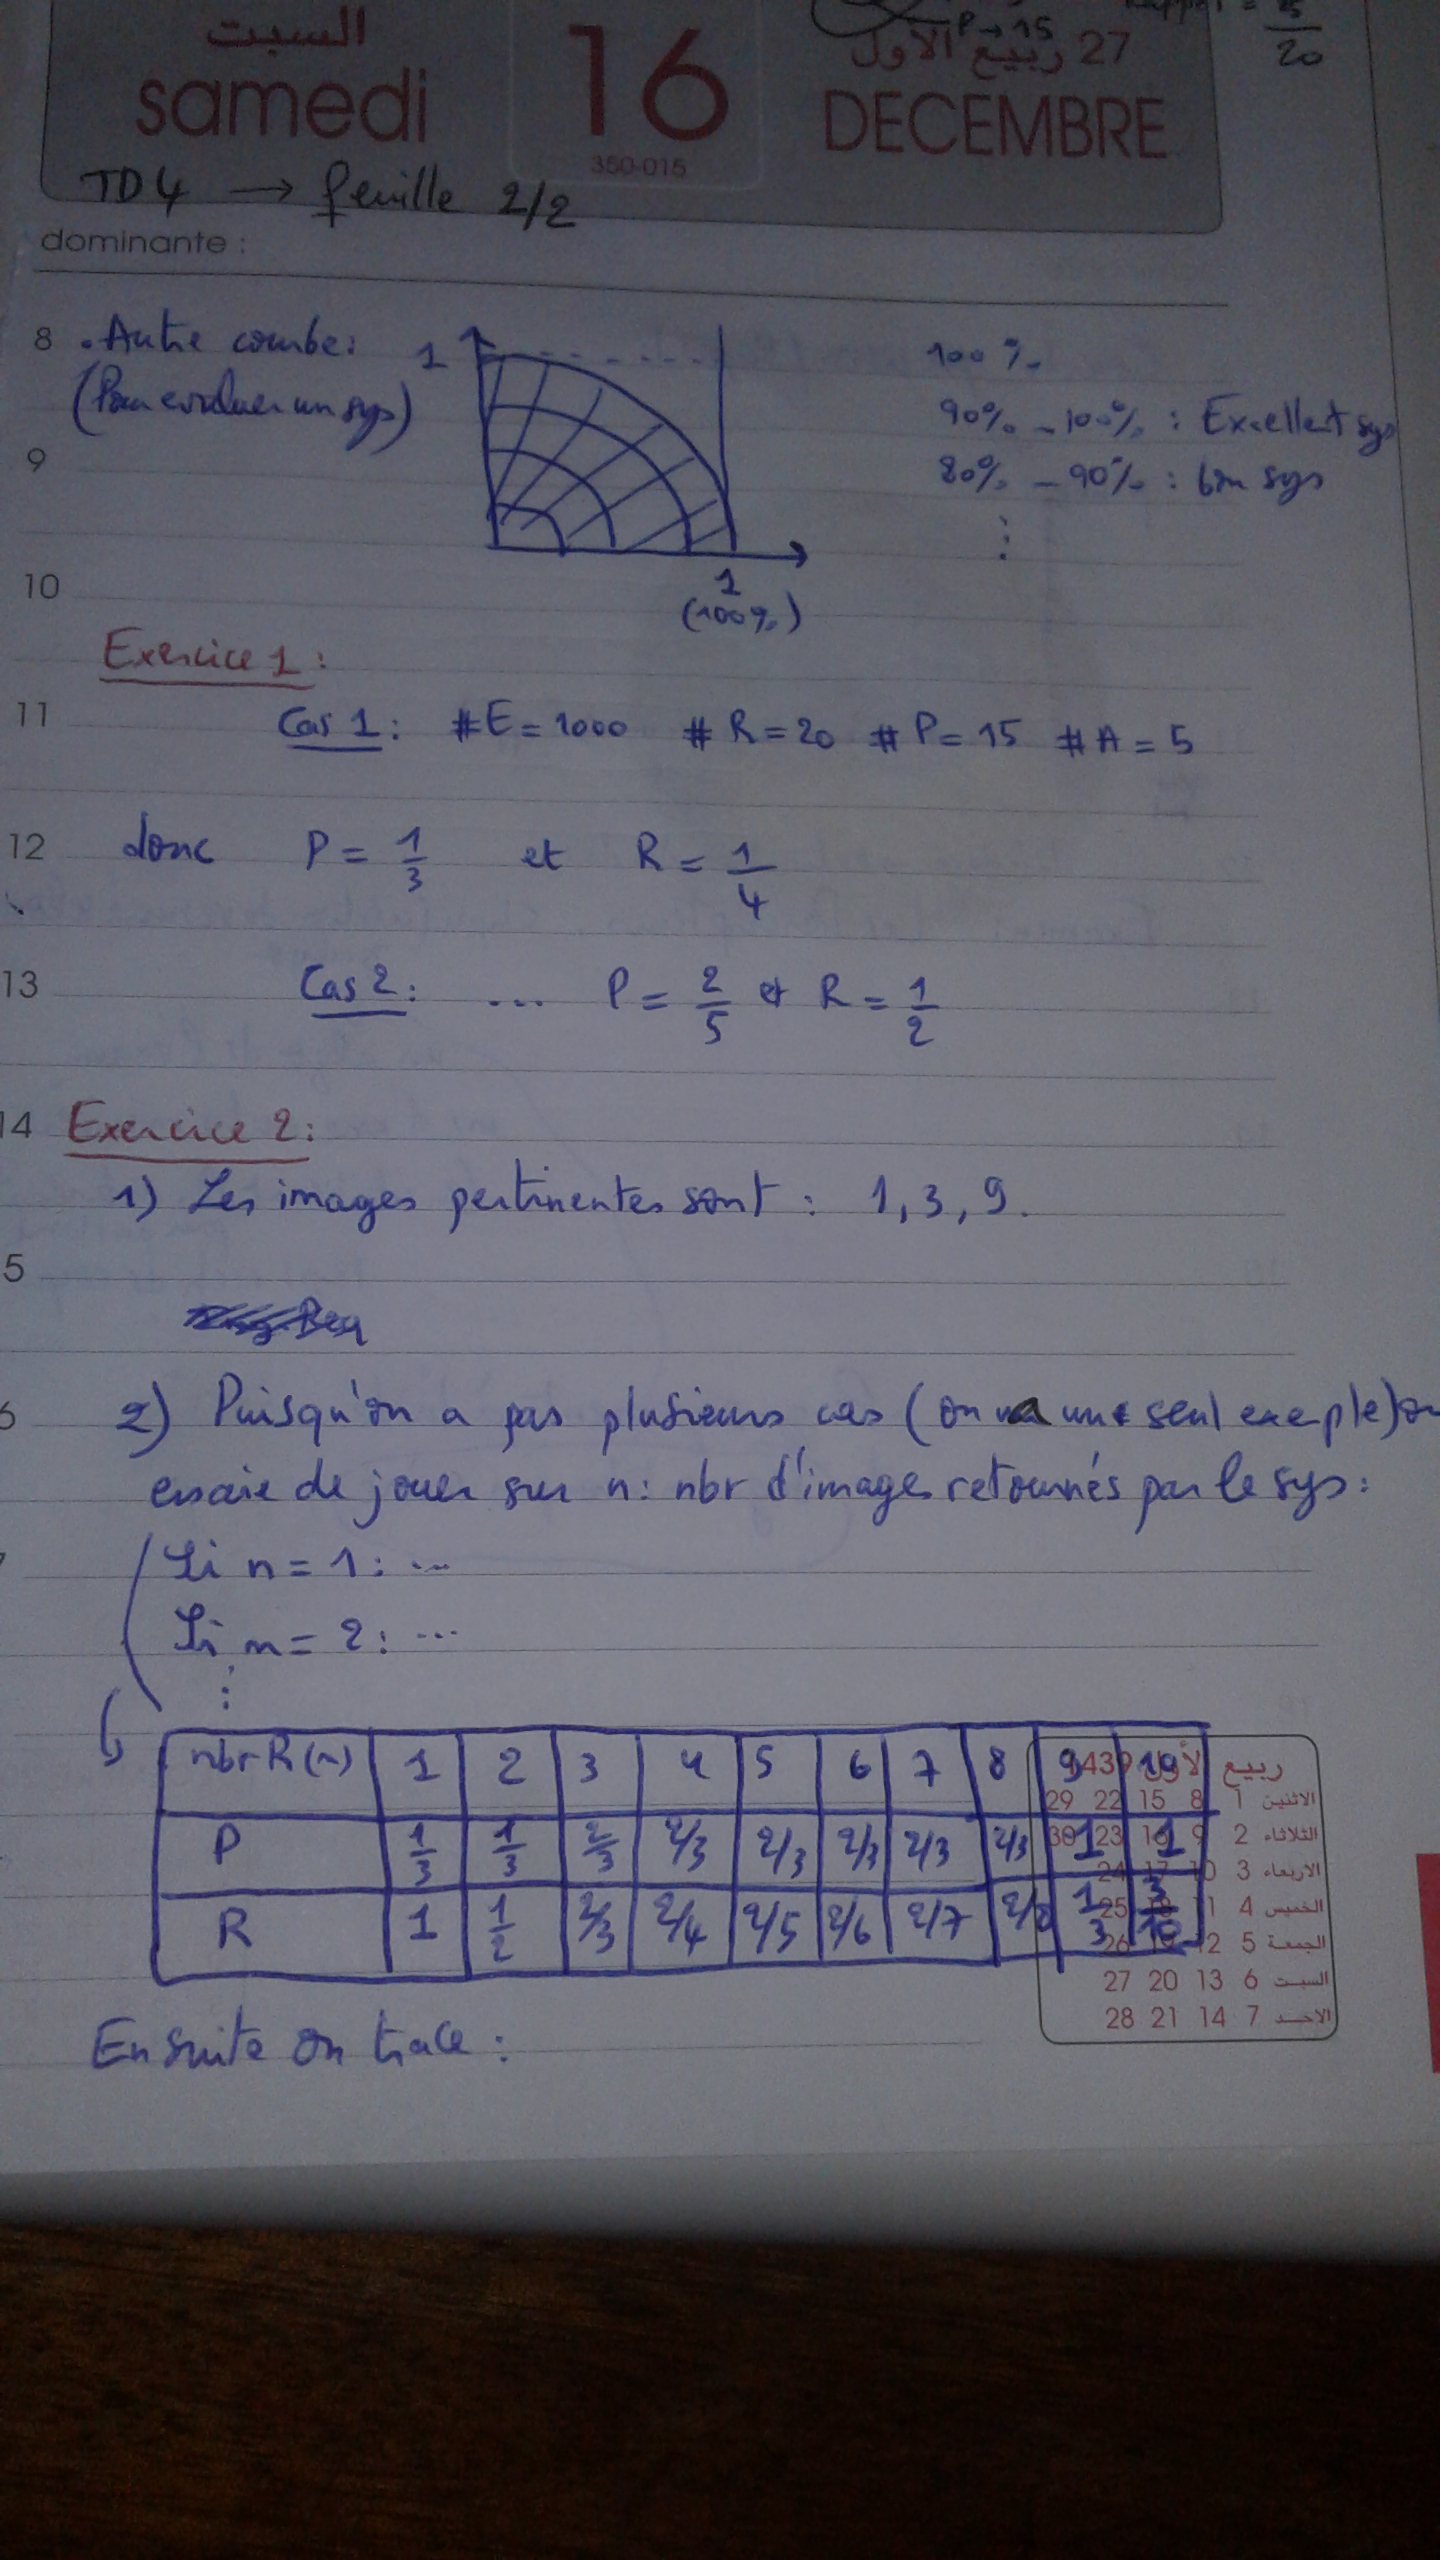 السبت
samedi
16
350-015
P → 15
27 ربيع الأول
DECEMBRE
20
TD4 → feuille 2/2
dominante :
8 . Autre courbe :
(Pour evaluer un sys)
1
1
(100%)
100 %
90% - 100% : Excellent sys
80% - 90% : bon sys
⋮
9
10
Exercice 1 :
11 Cas 1 : #E = 1000 # R = 20 # P = 15 # A = 5
12 donc P = 1/3 et R = 1/4
13 Cas 2 : ... P = 2/5 et R = 1/2
14 Exercice 2 :
1) Les images pertinentes sont : 1, 3, 9.
5
2) Puisqu'on a pas plusieurs cas (on a un seul exemple) on
essaie de jouer sur n : nbr d'images retournés par le sys :
Si n = 1 : ...
Si n = 2 : ...
⋮
nbr R(n) 1 2 3 4 5 6 7 8 9 10
P 1/3 1/3 2/3 2/3 2/3 2/3 2/3 2/3 1 1
R 1 1/2 2/3 2/4 2/5 2/6 2/7 2/8 1/3 3/10
ربيع الأول 1439
الاثنين 1 8 15 22 29
الثلاثاء 2 9 16 23 30
الاربعاء 3 10 17 24
الخميس 4 11 18 25
الجمعة 5 12 19 26
السبت 6 13 20 27
الاحد 7 14 21 28
Ensuite on trace :